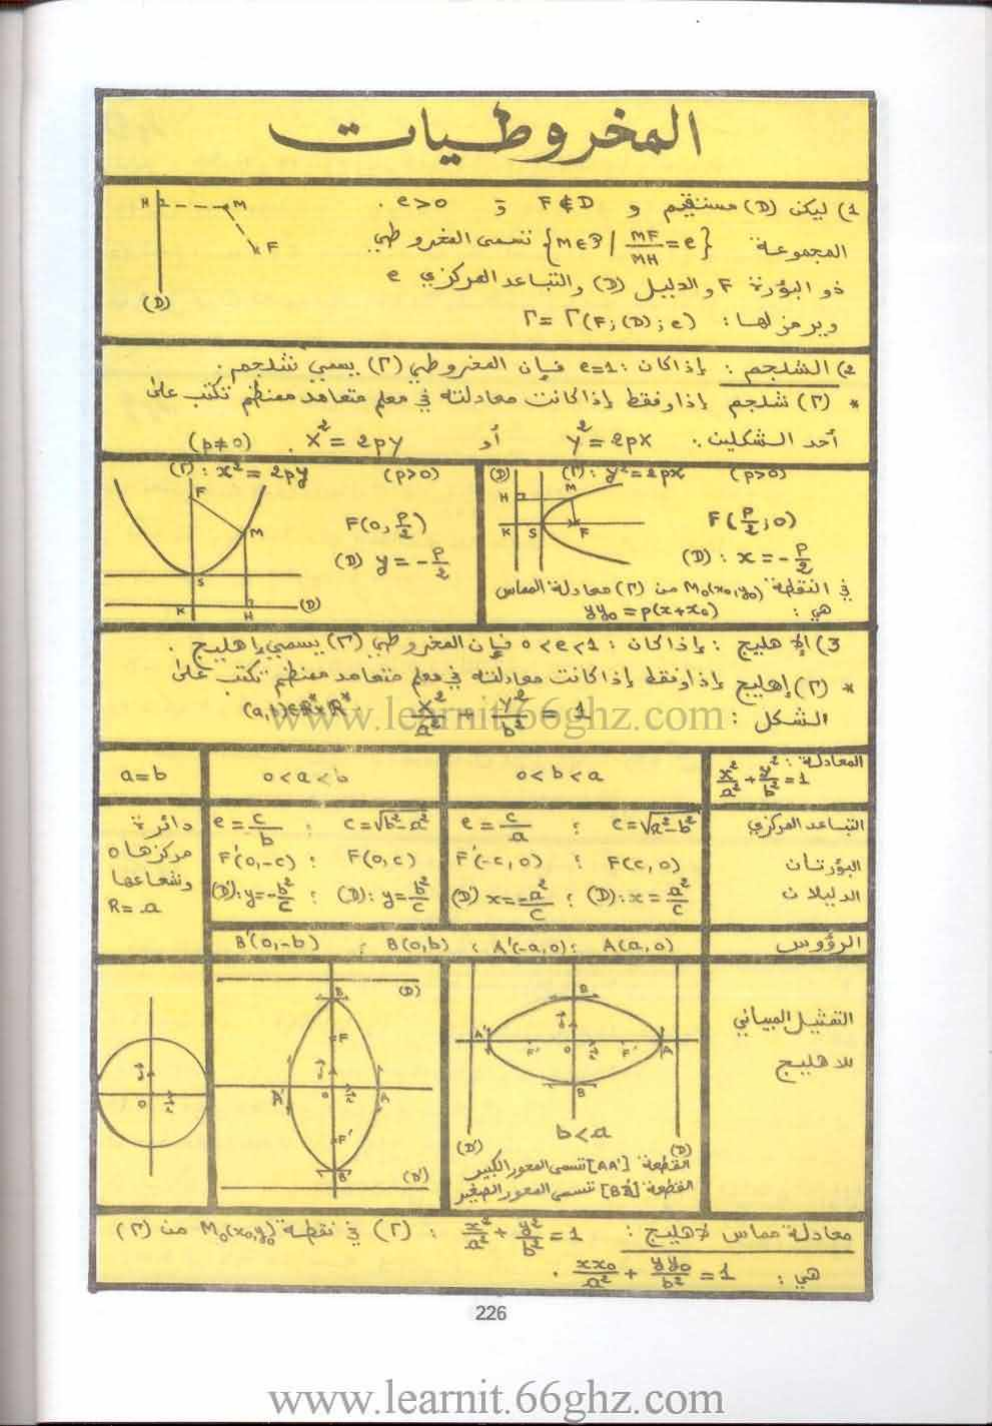 المخروطيات
1) ليكن (D) مستقيم و F ∉ D و e>0 .
المجموعة {M∈P / MF/MH = e} تسمى المخروطي
ذو البؤرة F والدليل (D) والتباعد المركزي e
ويرمز لها : Γ = Γ(F;(D);e)
H M F (D)
2) الشلجم : إذا كان : e=1 فإن المخروطي (Γ) يسمى شلجم .
* (Γ) شلجم إذا وفقط إذا كانت معادلته في معلم متعامد ممنظم تكتب على
أحد الشكلين : y² = 2px أو x² = 2py . (p≠0)
(Γ) : y² = 2px (p>0)
F(p/2 ; 0)
(D) : x = -p/2
في النقطة M₀(x₀,y₀) من (Γ) معادلة المماس
هي : yy₀ = p(x+x₀)
(D) H M K S F
(Γ) : x² = 2py (p>0)
F(0, p/2)
(D) y = -p/2
F M S K H (D)
3) الإهليج : إذا كان : 0<e<1 فإن المخروطي (Γ) يسمى إهليج .
* (Γ) إهليج إذا وفقط إذا كانت معادلته في معلم متعامد ممنظم تكتب على
الشكل : x²/a² + y²/b² = 1 (a,b)∈R*×R*
www.learnit.66ghz.com
المعادلة : x²/a² + y²/b² = 1
0<b<a
0<a<b
a=b
التباعد المركزي
البؤرتان
الدليلان
e = c/a ; c = √(a²-b²)
F'(-c,0) ; F(c,0)
(D') x = -a²/c ; (D): x = a²/c
e = c/b ; c = √(b²-a²)
F'(0,-c) ; F(0,c)
(D'): y = -b²/c ; (D): y = b²/c
دائرة
مركزها O
وشعاعها
R = a
الرؤوس
A(a,0) ; A'(-a,0) ; B(0,b) ; B'(0,-b)
التمثيل المبياني
للاهليج
A' F' O F A B B
b<a
(D') (D)
القطعة [AA'] تسمى المحور الكبير
القطعة [BB'] تسمى المحور الصغير
(D) B F A' O A F' B' (D')
O
معادلة مماس لإهليج : (Γ) : x²/a² + y²/b² = 1 في نقطة M₀(x₀,y₀) من (Γ)
هي : xx₀/a² + yy₀/b² = 1 .
226
www.learnit.66ghz.com